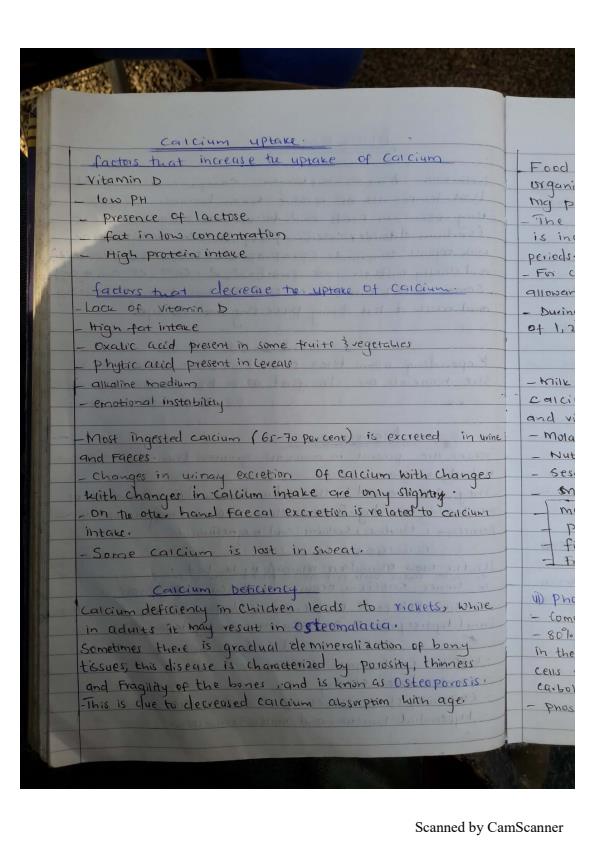 Calcium uptake.
factors that increase the uptake of calcium
- Vitamin D
- low PH
- presence of lactose
- fat in low concentration
- High protein intake
factors that decrease the uptake of calcium.
- Lack of vitamin D
- High fat intake
- Oxalic acid present in some fruits & vegetables
- Phytic acid present in cereals
- alkaline medium
- emotional instability
- Most ingested calcium (65-70 per cent) is excreted in urine
and faeces.
- Changes in urinary excretion Of calcium with changes
with changes in calcium intake are only slightly.
- on the other hand faecal excretion is related to calcium
intake.
- Some calcium is lost in sweat.
Calcium Deficiency
Calcium deficienty in children leads to rickets, while
in adults it may result in Osteomalacia.
Sometimes there is gradual demineralization of bony
tissues, this disease is characterized by porosity, thinness
and Fragility of the bones, and is known as Osteoporosis.
- This is due to decreased calcium absorption with age.
- Food
organi
mg p
- The
is inc
periods.
- For c
allowan
- During
of 1,2
- Milk
calci
and vi
- Mola
- Nut
- Ses
- m
- p
- f
ii) Pho
- Com
- 80%
in the
cells
carbo
- phos
Scanned by CamScanner